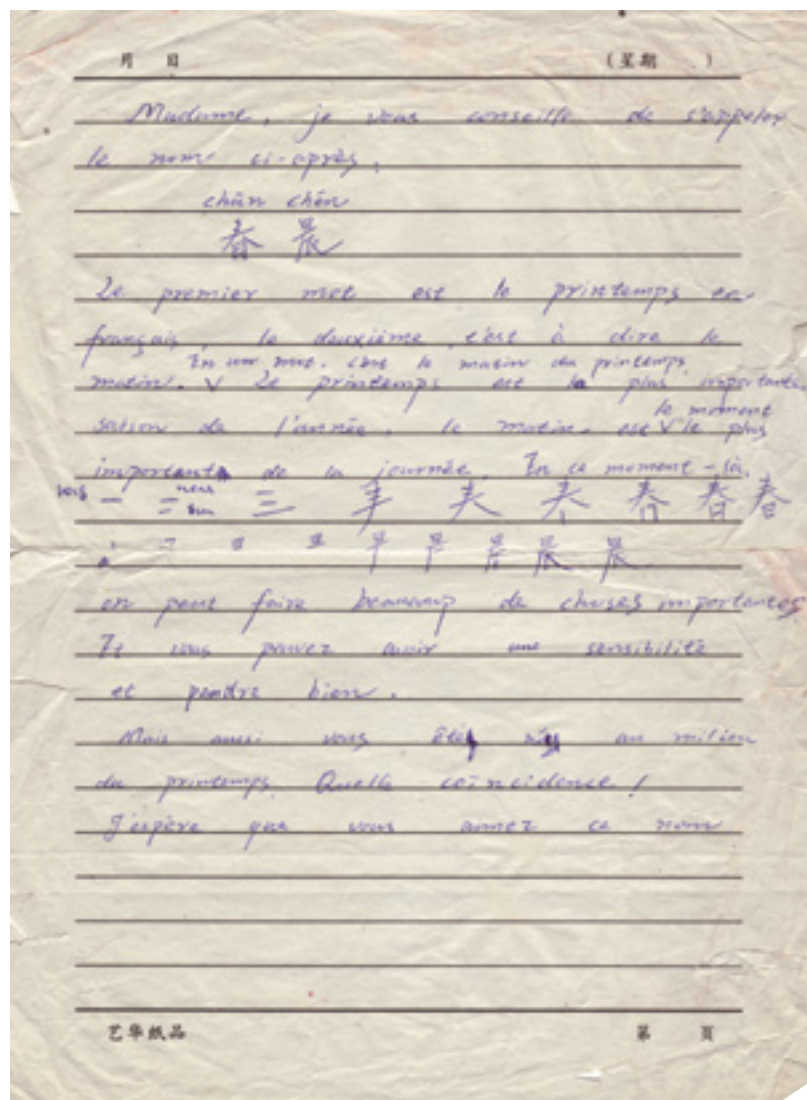 月 日 (星期 )
Madame, je vous conseille de s'appeler
le nom ci-après,
chūn chén
春 晨
Le premier mot est le printemps en
français, le deuxième, c'est à dire le
En un mot. c'est le matin du printemps.
matin. V Le printemps est la plus importante
saison de l'année, le matin, est V le plus
le moment
important de la journée. En ce moment-là,
一 二 三 夫 春 春
晨 晨
on peut faire beaucoup de choses importantes.
Et vous pouvez avoir une sensibilité
et peindre bien.
Mais aussi vous êtes au milieu
du printemps. Quelle coïncidence!
J'espère que vous aimez ce nom
艺华纸品 第 页